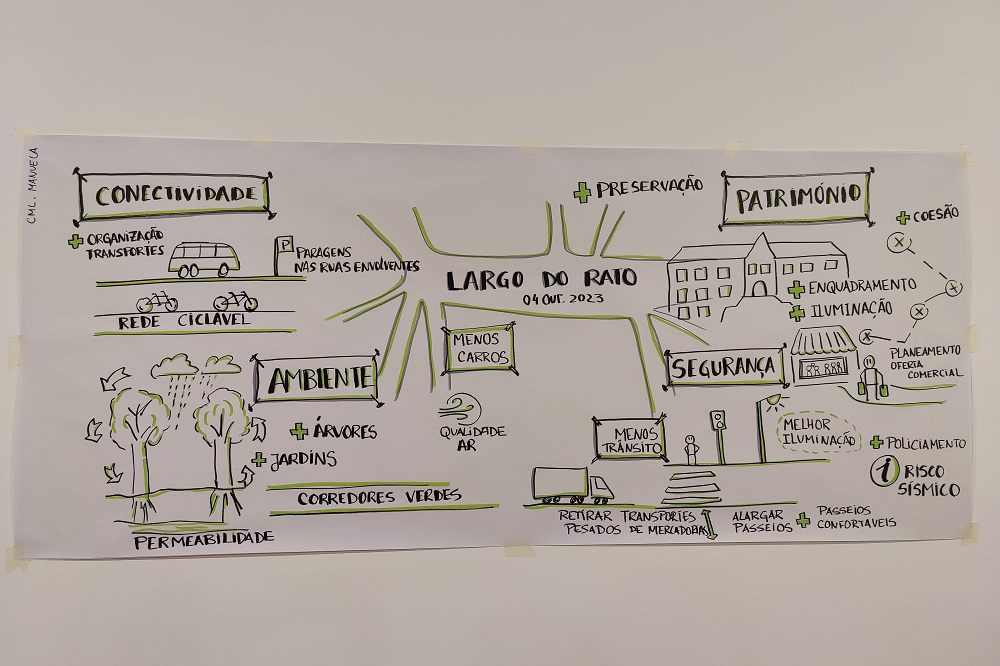 CML. MANUELA
CONECTIVIDADE
+ ORGANIZAÇÃO
TRANSPORTES
P
PARAGENS
NAS RUAS ENVOLVENTES
REDE CICLÁVEL
LARGO DO RATO
04 OUT. 2023
+ PRESERVAÇÃO
PATRIMÓNIO
+ COESÃO
+ ENQUADRAMENTO
+ ILUMINAÇÃO
X
X
X
X
PLANEAMENTO
OFERTA
COMERCIAL
MENOS
CARROS
QUALIDADE
AR
AMBIENTE
+ ÁRVORES
+ JARDINS
CORREDORES VERDES
PERMEABILIDADE
SEGURANÇA
MENOS
TRÂNSITO
MELHOR
ILUMINAÇÃO
+ POLICIAMENTO
i RISCO
SÍSMICO
RETIRAR TRANSPORTES
PESADOS DE MERCADORIAS
ALARGAR
PASSEIOS
+ PASSEIOS
CONFORTAVEIS